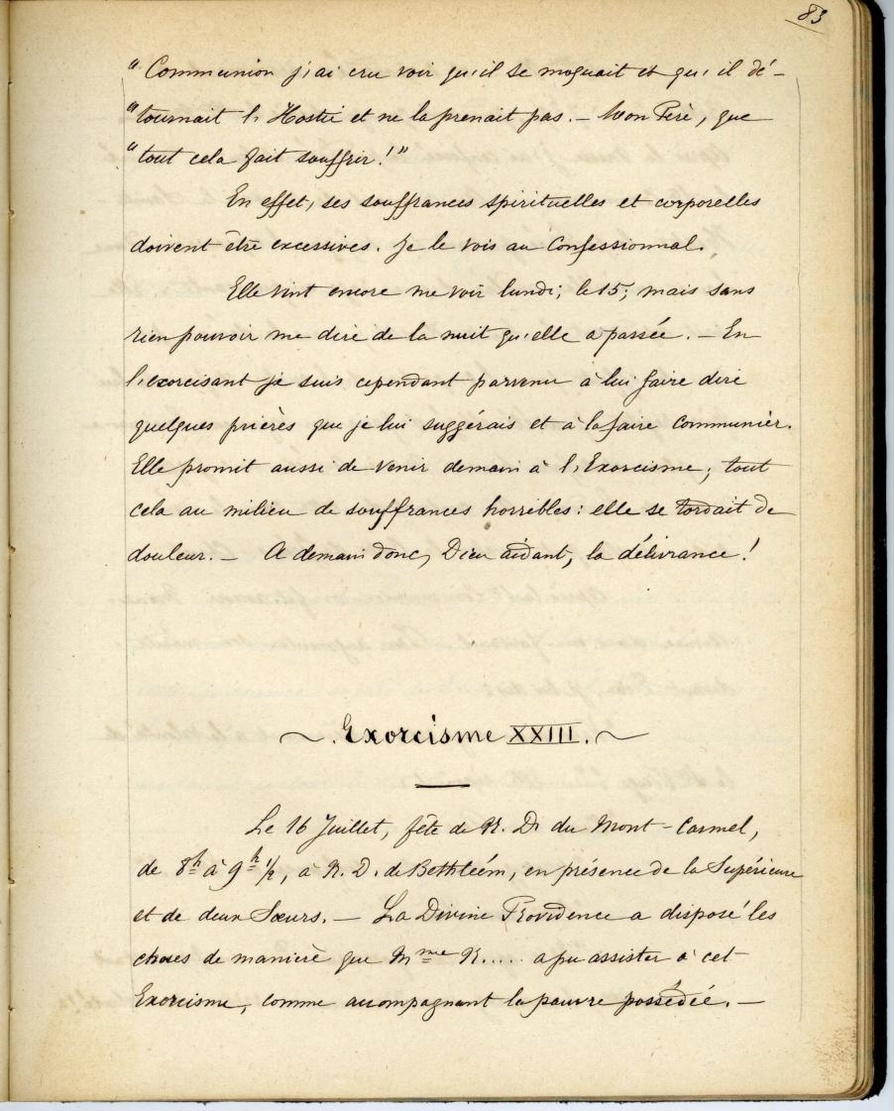 83
"Communion j'ai cru voir qu'il se moquait et qu'il dé-
"tournait l'Hostie et ne la prenait pas. — Mon Père, que
"tout cela fait souffrir!"
En effet, ses souffrances spirituelles et corporelles
doivent être excessives. Je le vois au Confessionnal.
Elle vint encore me voir lundi, le 15; mais sans
rien pouvoir me dire de la nuit qu'elle a passée. — En
l'exorcisant je suis cependant parvenu à lui faire dire
quelques prières que je lui suggérais et à la faire communier.
Elle promit aussi de venir demain à l'Exorcisme; tout
cela au milieu de souffrances horribles: elle se tordait de
douleur. — A demain donc, Dieu aidant, la délivrance!
~ Exorcisme XXIII. ~
Le 16 Juillet, fête de N. D. du Mont-Carmel,
de 8h à 9h 1/2, à N. D. de Bethléém, en présence de la Supérieure
et de deux Sœurs. — La Divine Providence a disposé les
choses de manière que Mme R..... a pu assister à cet
Exorcisme, comme accompagnant la pauvre possédée. —